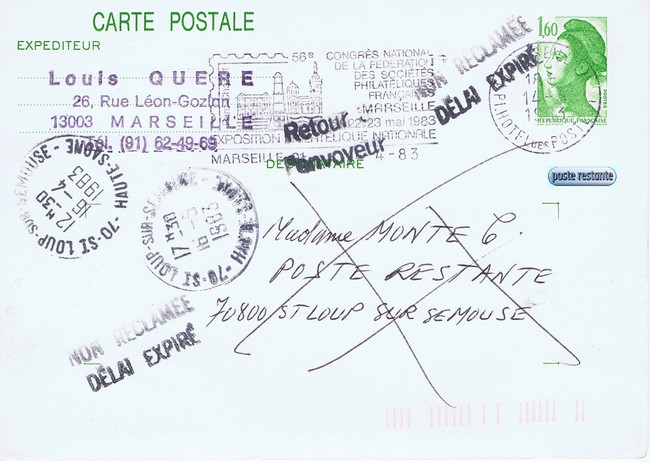 CARTE POSTALE
EXPEDITEUR
Louis QUERE
26, Rue Léon-Gozlan
13003 MARSEILLE
Tél. (91) 62-49-69
56e CONGRÈS NATIONAL
DE LA FEDERATION
DES SOCIÉTÉS
PHILATÉLIQUES
FRANÇAISES
MARSEILLE
22-23 mai 1983
EXPOSITION PHILATELIQUE NATIONALE
MARSEILLE
4-83
NON RÉCLAMÉE
DÉLAI EXPIRÉ
1,60
POSTES
REPUBLIQUE FRANÇAISE
P.HOTEL DES POSTES
Retour
à l'envoyeur
DESTINATAIRE
poste restante
70-ST LOUP-SUR-SEMOUSE - HAUTE-SAÔNE
12 H30
16-4
1983
70-ST LOUP-SUR-SEMOUSE
17 H30
1983
Madame MONTE C.
POSTE RESTANTE
70800 ST LOUP SUR SEMOUSE
NON RÉCLAMÉE
DÉLAI EXPIRÉ